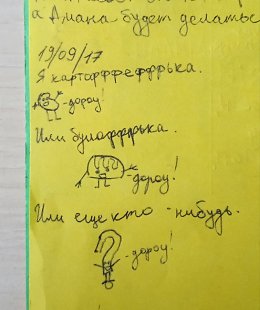 а Диана будет делатьс
19/09/17
Я карторффеффрька.
-дороу!
Или булаффрька.
-дороу!
Или еще кто-нибудь.
-дороу!